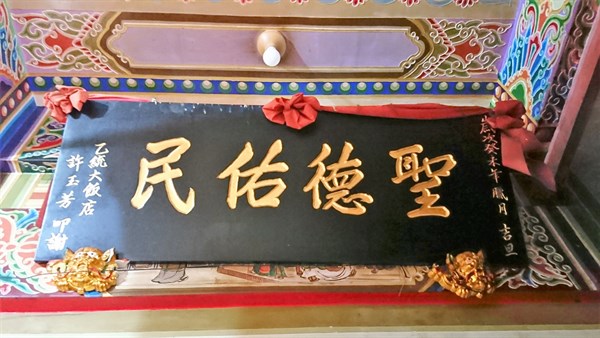 歲次癸未年臘月吉旦
聖德佑民
乙統大飯店
許玉芳叩謝